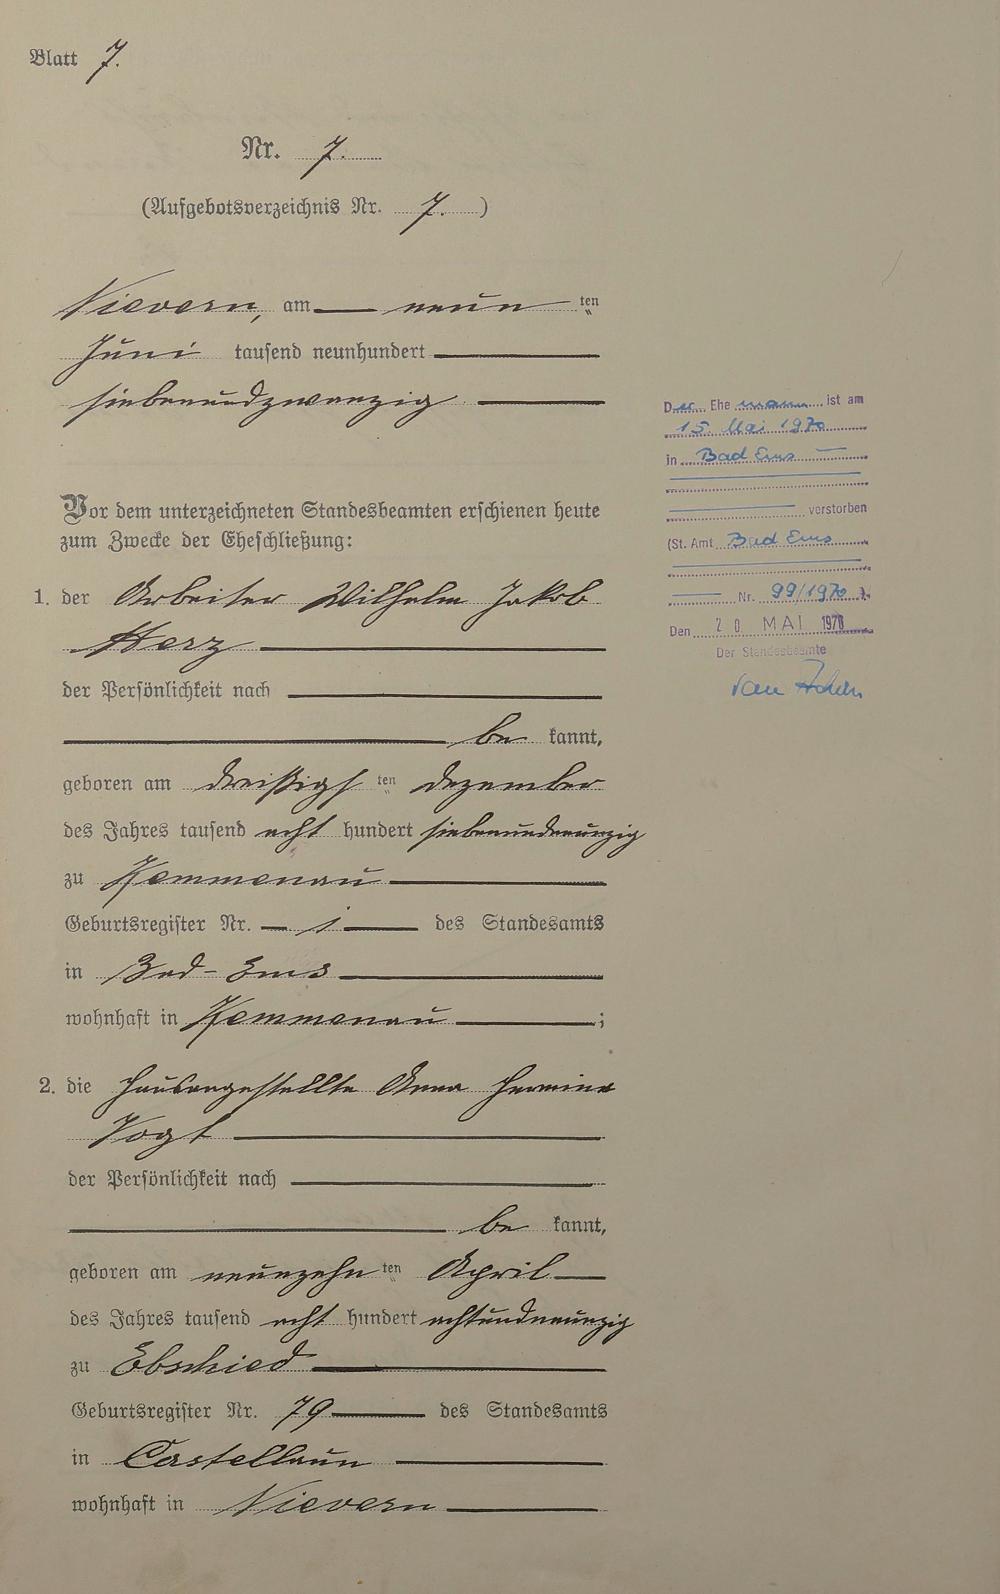 Blatt 7.
Nr. 7.
(Aufgebotsverzeichnis Nr. 7.)
Nievern, am neun ten
Juni tausend neunhundert
siebenundzwanzig
Vor dem unterzeichneten Standesbeamten erschienen heute
zum Zwecke der Eheschließung:
1. der Arbeiter Wilhelm Jakob
Herz
der Persönlichkeit nach
be kannt,
geboren am dreißigs ten Dezember
des Jahres tausend acht hundert siebenundneunzig
zu Kemmenau
Geburtsregister Nr. 1 des Standesamts
in Bad-Ems
wohnhaft in Kemmenau;
2. die Hausangestellte Anna Hermine
Vogt
der Persönlichkeit nach
be kannt,
geboren am neunzehn ten April
des Jahres tausend acht hundert achtundneunzig
zu Ebschied
Geburtsregister Nr. 79 des Standesamts
in Castellaun
wohnhaft in Nievern
Der Ehe mann ist am
15. Mai 1970
in Bad Ems
verstorben
(St. Amt Bad Ems
Nr. 99/1970)
Den 20 MAI 1970
Der Standesbeamte